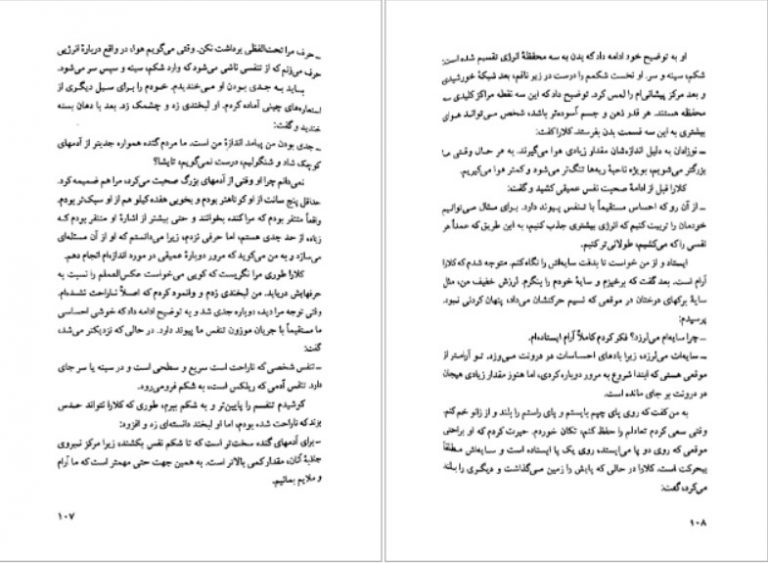 ـ حرف مرا تحت‌اللفظی برداشت نکن. وقتی می‌گویم هوا، در واقع دربارهٔ انرژیی
حرف می‌زنم که از تنفسی ناشی می‌شود که وارد شکم، سینه و سپس سر می‌شود.
باید به جدی بودن او می‌خندیدم. خودم را برای سیل دیگری از
استعاره‌های چینی آماده کردم. او لبخندی زد و چشمک زد. بعد با دهان بسته
خندید و گفت:
ـ جدی بودن من پیامد اندازهٔ من است. ما مردم گنده همواره جدیتر از آدمهای
کوچک شاد و شنگولیم، درست نمی‌گویم، تایشا؟
نمی‌دانم چرا او وقتی از آدمهای بزرگ صحبت می‌کرد، مرا هم ضمیمه کرد.
حداقل پنج سانت از او کوتاهتر بودم و بخوبی هفده کیلو هم از او سبک‌تر بودم.
واقعاً متنفر بودم که مرا گنده بخوانند و حتی بیشتر از اشارهٔ او متنفر بودم کـه
زیاده از حد جدی هستم، اما حرفی نزدم، زیرا می‌دانستم که او از آن مسئله‌ای
می‌سازد و به من می‌گوید که مرور دوبارهٔ عمیقی در مورد اندازه‌ام انجام دهم.
کلارا طوری مرا نگریست که گویی می‌خواست عکس‌العملم را نسبت به
حرفهایش دریابد. من لبخندی زدم و وانمود کردم که اصلاً نـاراحت نشده‌ام.
وقتی توجه مرا دید، دوباره جدی شد و به توضیح ادامه داد که خوشی احساسی
ما مستقیماً با جریان موزون تنفس ما پیوند دارد. در حالی که نزدیکتر می‌شد،
گفت:
ـ تنفس شخصی که ناراحت است سریع و سطحی است و در سینه یا سر جای
دارد. تنفس آدمی که ریلکس است، به شکم فرومی‌رود.
کوشیدم تنفسم را پایین‌تر و به شکم ببرم، طوری که کلارا نتواند حدس
بزند که ناراحت شده بودم، اما او لبخند دانسته‌ای زد و افزود:
ـ برای آدمهای گنده سخت‌تر است که تا شکم نفس بکشند، زیرا مرکز نیروی
جاذبهٔ آنان، مقدار کمی بالاتر است. به همین جهت حتی مهمتر است که ما آرام
و ملایم بمانیم.
۱۰۷
او به توضیح خود ادامه داد که بدن به سه محفظهٔ انرژی تقسیم شده است:
شکم، سینه و سر. او نخست شکمم را درست در زیر نافم، بعد شبکهٔ خورشیدی
و بعد مرکز پیشانی‌ام را لمس کرد. توضیح داد که این سه نقطه مراکز کلیدی سه
محفظه هستند. هر قدر ذهن و جسم آسوده‌تر باشد، شخص می‌تواند هوای
بیشتری به این سه قسمت بدن بفرستد. کلارا گفت:
ـ نوزادان به دلیل اندازه‌شان مقدار زیادی هوا می‌گیرند. به هر حال وقتی ما
بزرگتر می‌شویم، بویژه ناحیهٔ ریه‌ها تنگ‌تر می‌شود و کمتر هوا می‌گیریم.
کلارا قبل از ادامهٔ صحبت نفس عمیقی کشید و گفت:
ـ از آن رو که احساس مستقیماً با تنفس پیوند دارد. برای مثال می‌توانیم
خودمان را تربیت کنیم که انرژی بیشتری جذب کنیم، به این طریق که عمداً هر
نفسی را که می‌کشیم، طولانی‌تر کنیم.
ایستاد و از من خواست تا بدقت سایه‌اش را نگاه کنم. متوجه شدم که کلارا
آرام است. بعد گفت که برخیزم و سایهٔ خودم را بنگرم. لرزش خفیف من، مثل
سایهٔ برگهای درختان در موقعی که نسیم حرکتشان می‌داد، پنهان کردنی نبود.
پرسیدم:
ـ چرا سایه‌ام می‌لرزد؟ فکر کردم کاملاً آرام ایستاده‌ام.
ـ سایه‌ات می‌لرزد، زیرا بادهای احساسات در درونت می‌وزد. تو آرامتر از
موقعی هستی که ابتدا شروع به مرور دوباره کردی، اما هنوز مقدار زیادی هیجان
در درونت بر جای مانده است.
به من گفت که روی پای چپم بایستم و پای راستم را بلند و از زانو خم کنم.
وقتی سعی کردم تعادلم را حفظ کنم، تکان خوردم. حیرت کردم که او براحتی
موقعی که روی دو پا می‌ایستد، روی یک پا ایستاده است و سایه‌اش مطلقاً
بیحرکت است. کلارا در حالی که پایش را زمین می‌گذاشت و دیگری را بلند
می‌کرد، گفت:
۱۰۸